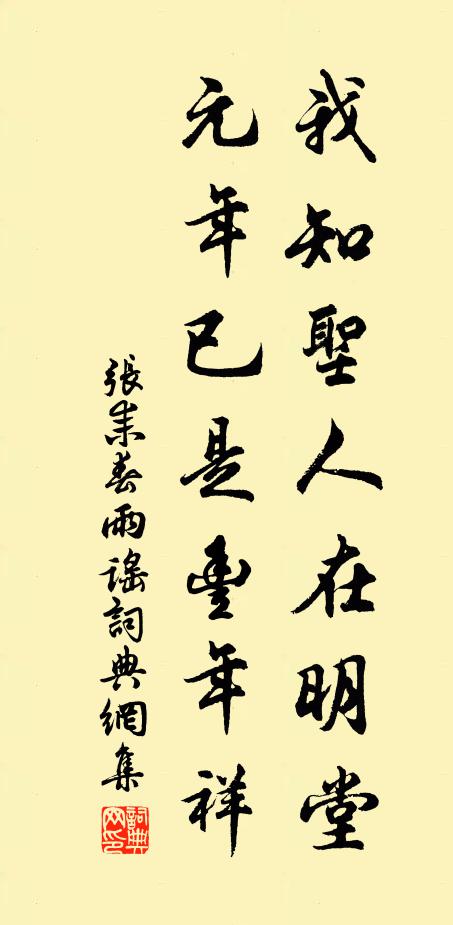 我知聖人在明堂
元年已是豐年祥
張耒春雨謠詞典網集
詞典
网印